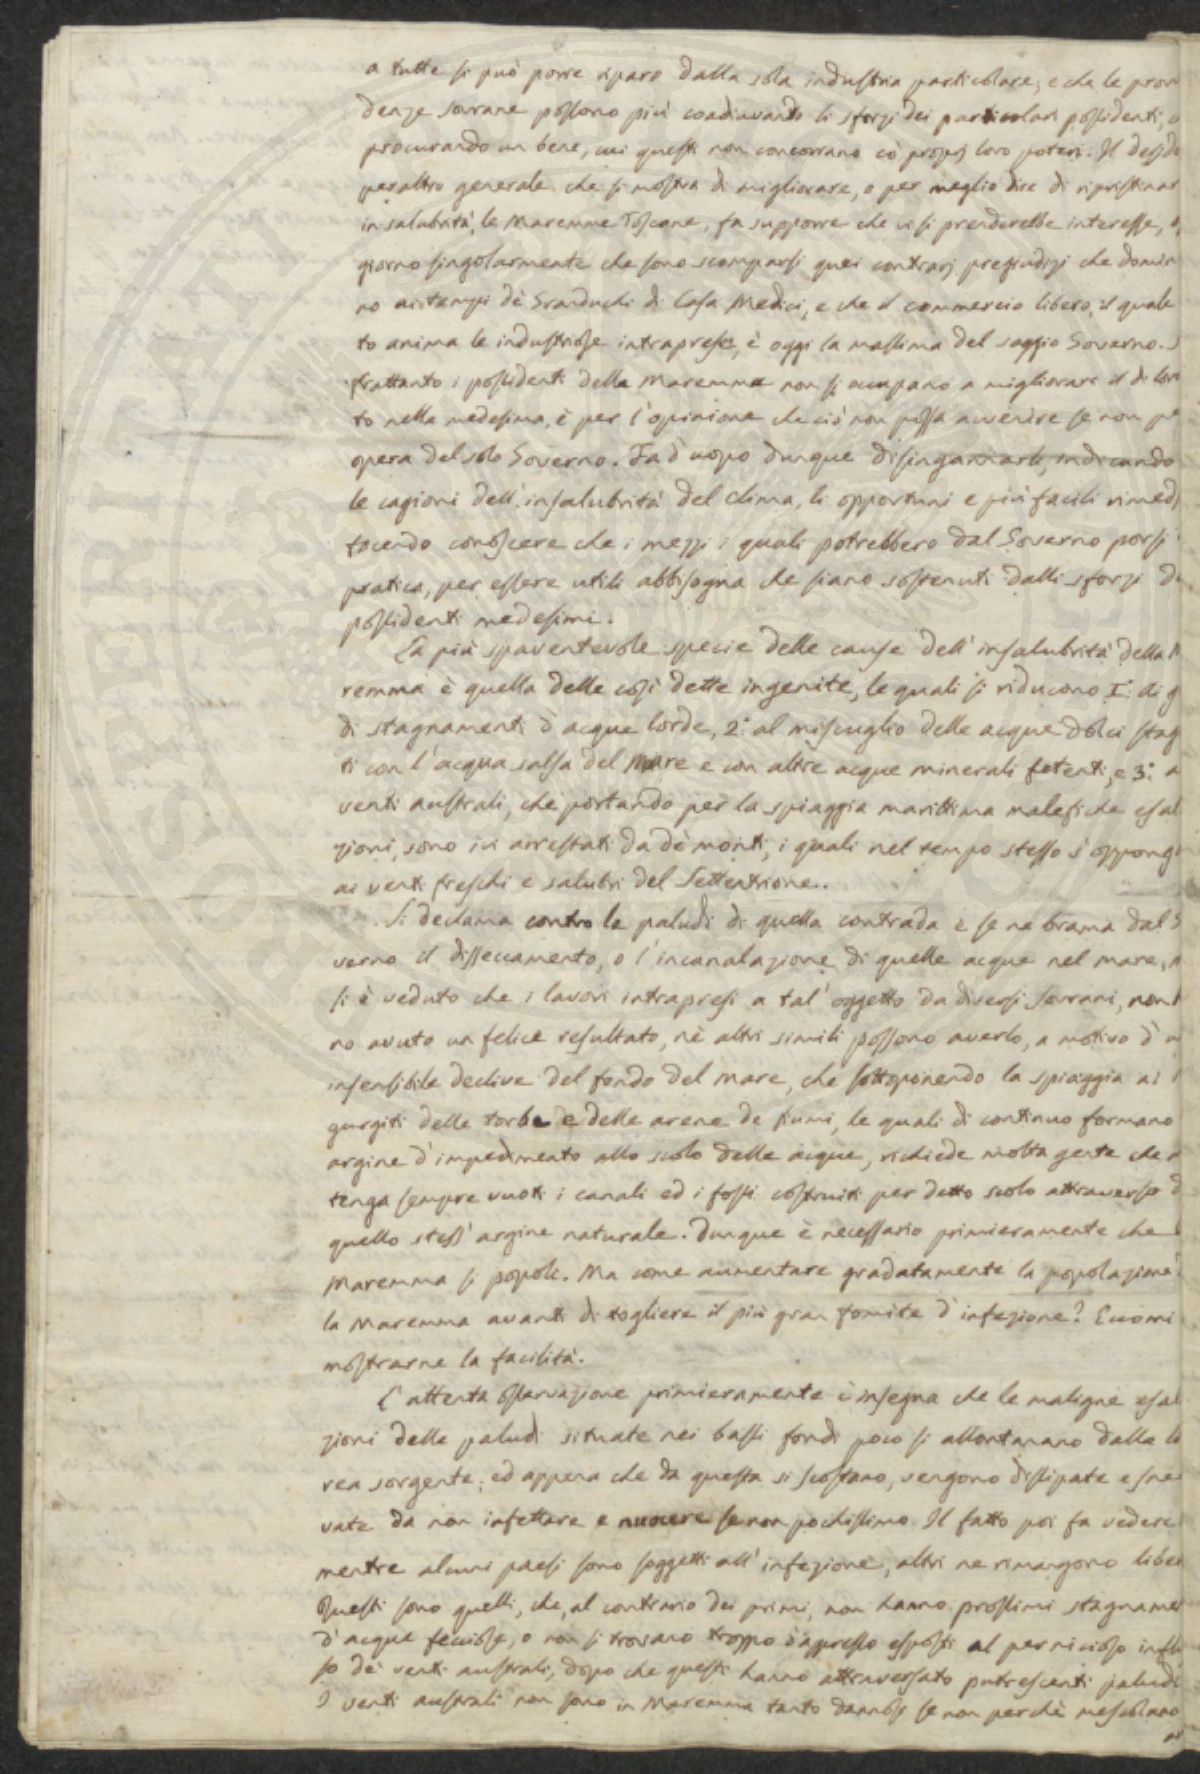 a tutte si può porre riparo dalla sola industria particolare, e che le prov
denze sovrane possono più coadiuvando li sforzi dei particolari possidenti, o
procurando un bene, cui questi non concorrano co' proprj loro poteri. Il deside
peraltro generale che si mostra di migliorare, o per meglio dire di ripristinar
in salubrità, le Maremme Toscane, fa supporre che vi si prenderebbe interesse, o
giorno singolarmente che sono scomparsi quei contrarj pregiudizj che domin
no ai tempi de' Granduchi di Casa Medici, e che il commercio libero, il quale
to anima le industriose intraprese, è oggi la massima del saggio Governo. S
frattanto i possidenti della Maremma non si occupano a migliorare il di loro
to nella medesima, è per l'opinione che ciò non possa avvenire se non pe
opera del solo Governo. Fa d'uopo dunque disingannarli, indicando
le cagioni dell'insalubrità del clima, li opportuni e più facili rimedj
facendo conoscere che i mezzi i quali potrebbero dal Governo porsi
pratica, per essere utili abbisogna che siano sostenuti dalli sforzi de
possidenti medesimi.
La più spaventevole specie delle cause dell'insalubrità della M
remma è quella delle così dette ingenite, le quali si riducono 1.° ai g
di stagnamenti d'acque lorde, 2.° al miscuglio delle acque dolci stag
ti con l'acqua salsa del Mare e con altre acque minerali fetenti, e 3.° a
venti australi, che portando per la spiaggia marittima malefiche esal
zioni, sono ivi arrestati da de' monti, i quali nel tempo stesso s'oppong
ai venti freschi e salubri del Settentrione.
Si declama contro le paludi di quella contrada e se ne brama dal G
verno il disseccamento, o l'incanalazione di quelle acque nel mare, m
si è veduto che i lavori intrapresi a tal'oggetto da diversi Sovrani, non h
no avuto un felice resultato, nè altri simili possono averlo, a motivo d'u
insensibile declive del fondo del mare, che sottoponendo la spiaggia ai r
gurgiti delle torbe e delle arene de fiumi, le quali di continuo formano
argine d'impedimento allo scolo delle acque, richiede molta gente che m
tenga sempre vuoti i canali ed i fossi costruiti per detto scolo attraverso d
quello stess'argine naturale. Dunque è necessario primieramente che l
Maremma si popoli. Ma come aumentare gradatamente la popolazione d
la Maremma avanti di togliere il più gran fomite d'infezione? Eccomi
mostrarne la facilità.
L'attenta osservazione primieramente c'insegna che le maligne esal
zioni delle paludi situate nei bassi fondi poco si allontanano dalla lo
rea sorgente; ed appena che da questa si scostano, vengono dissipate e sner
vate da non infettare e nuocere se non pochissimo. Il fatto poi fa vedere
mentre alcuni paesi sono soggetti all'infezione, altri ne rimangono liber
Questi sono quelli, che, al contrario dei primi, non hanno prossimi stagname
d'acque fecciose, o non si trovano troppo dappresso esposti al pernicioso influ
so de' venti australi, dopo che questi hanno attraversato putrescenti paludi
I venti australi non sono in Maremma tanto dannosi se non perchè mescolano